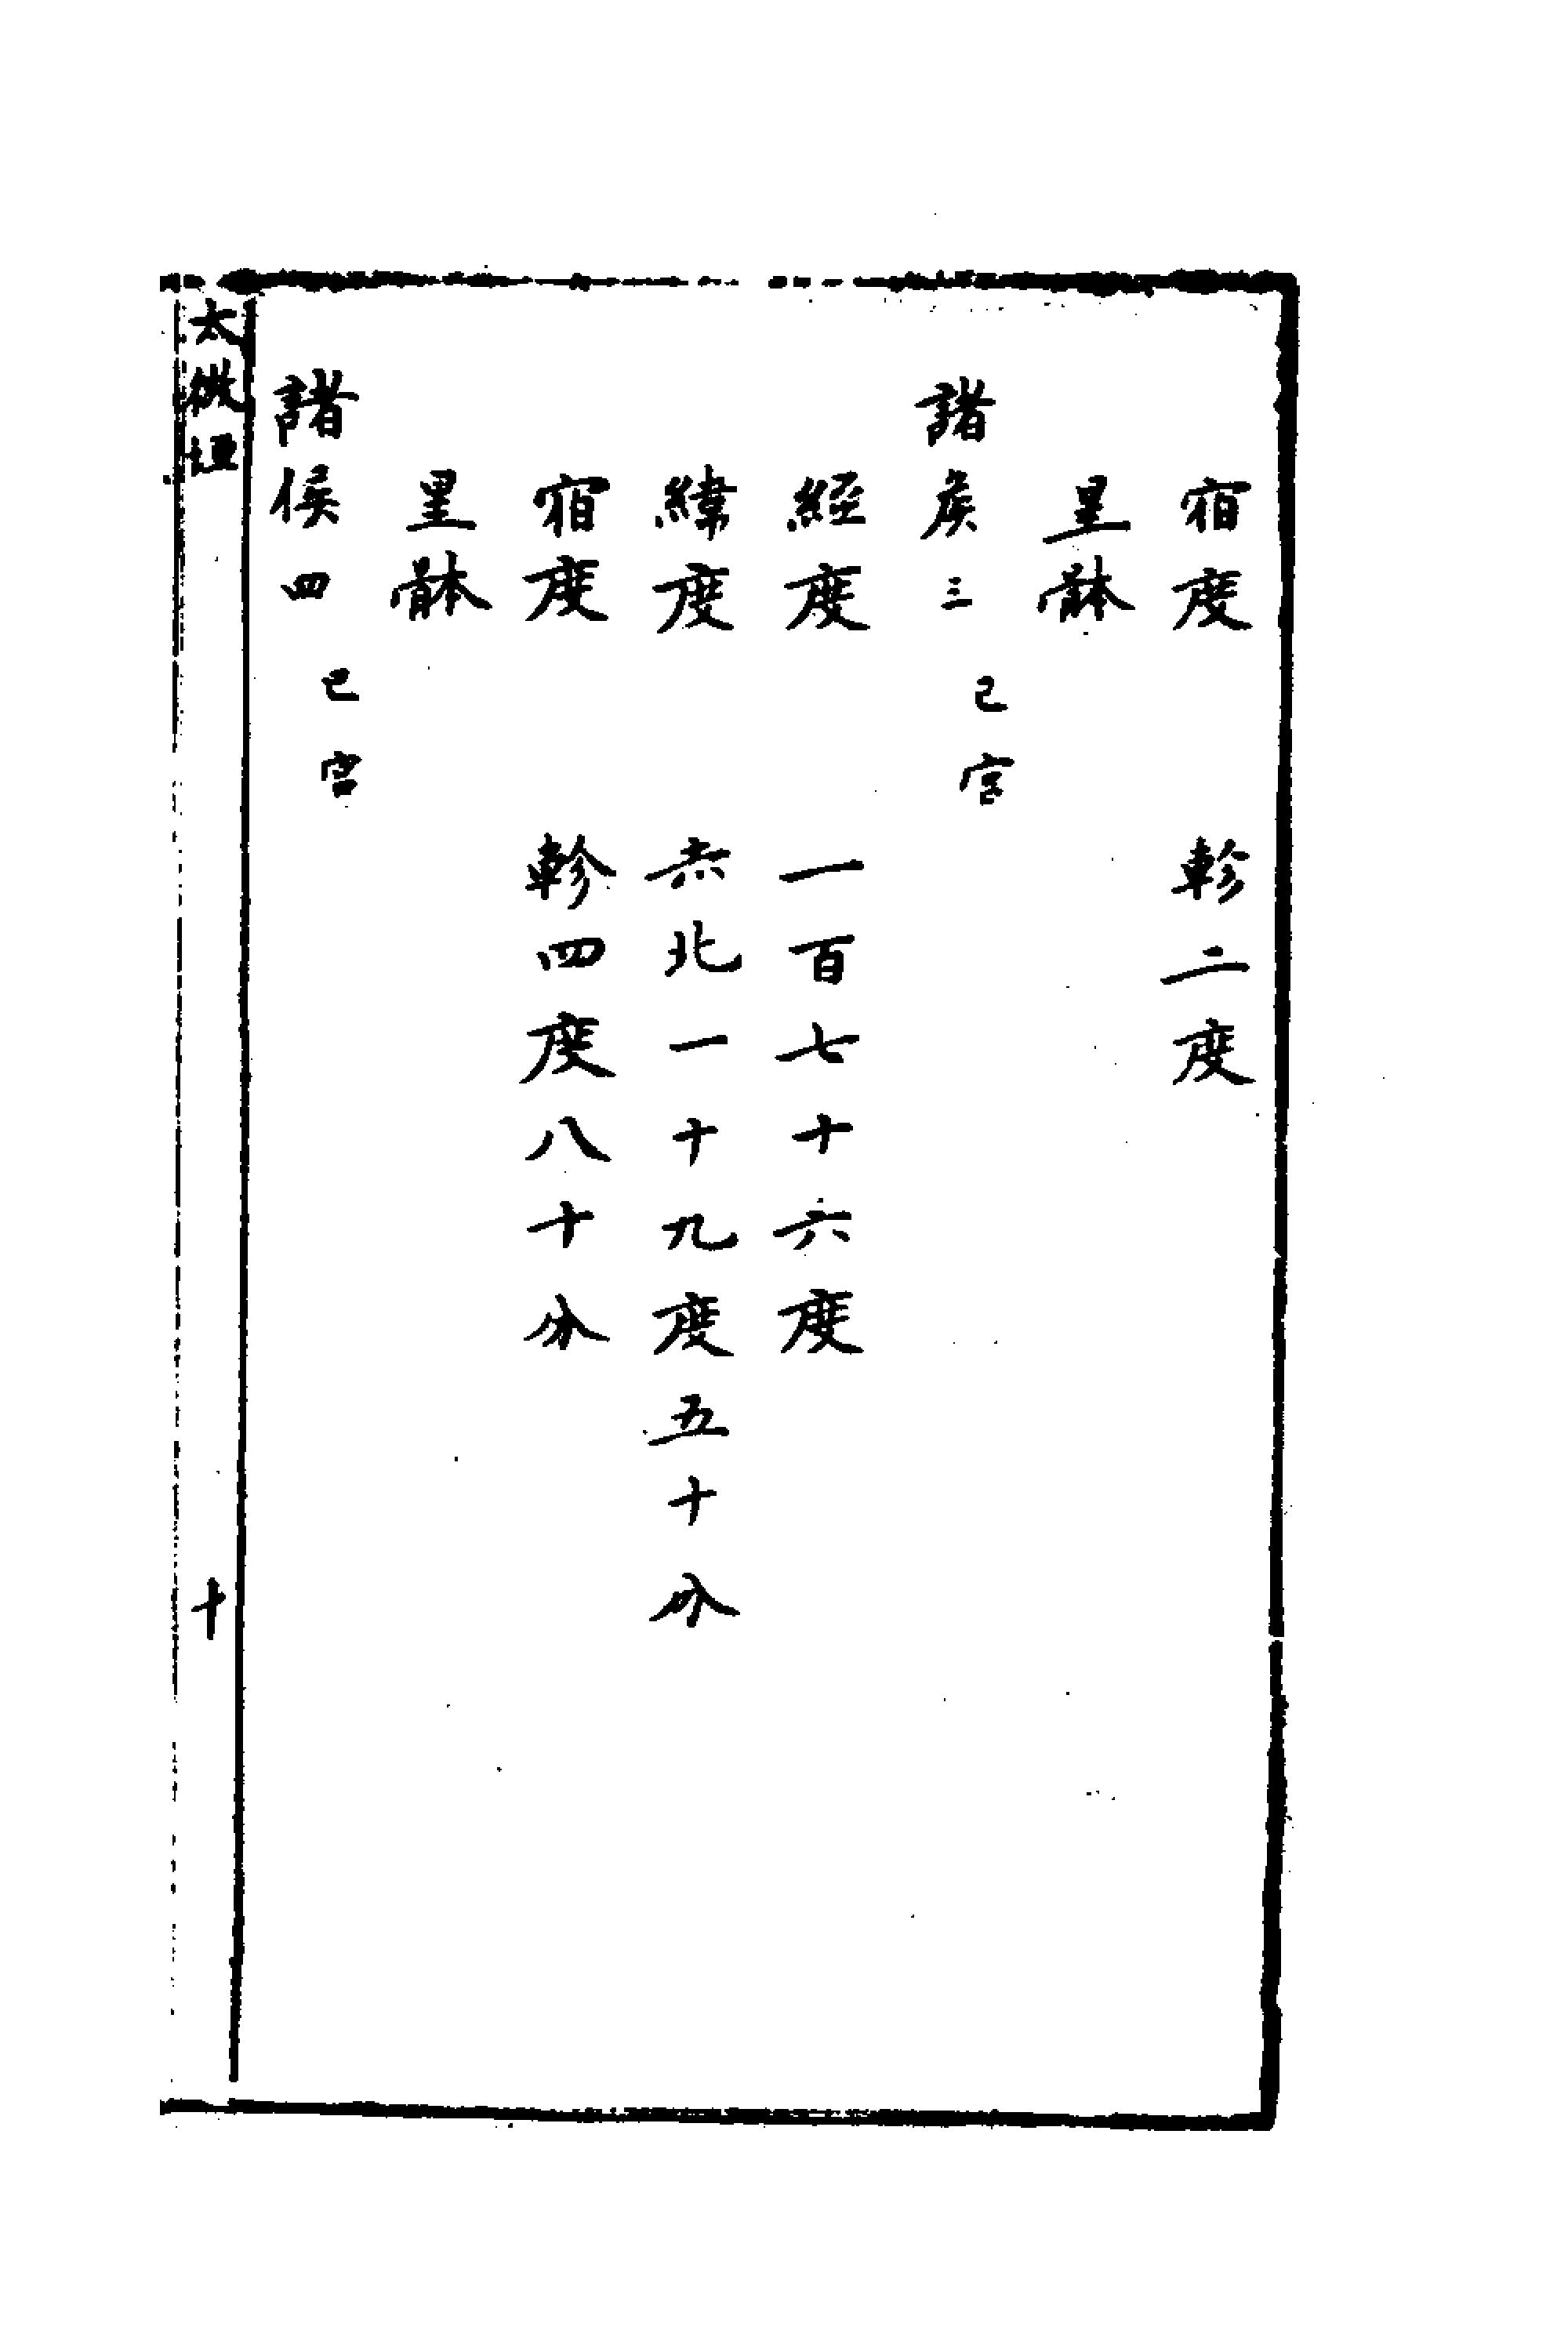 宿度 軫二度
星體
諸矦三 巳宮
經度 一百七十六度
緯度 赤北一十九度五十分
宿度 軫四度八十分
星體
諸侯四 巳宮
太微垣 十